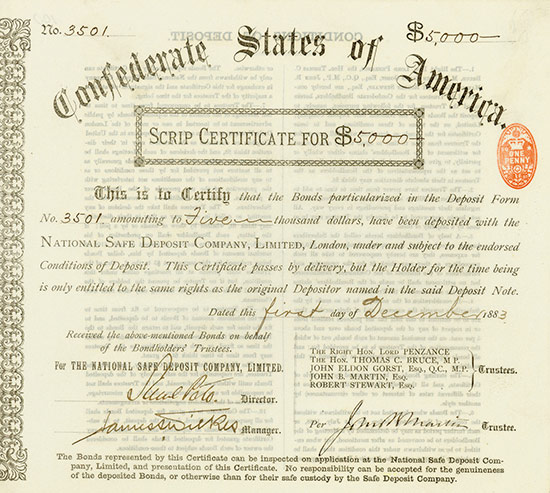 No. 3501. $5,000
Confederate States of America.
SCRIP CERTIFICATE FOR $5,000
ONE PENNY
This is to Certify that the Bonds particularized in the Deposit Form
No. 3501 amounting to Five thousand dollars, have been deposited with the
NATIONAL SAFE DEPOSIT COMPANY, LIMITED, London, under and subject to the endorsed
Conditions of Deposit. This Certificate passes by delivery, but the Holder for the time being
is only entitled to the same rights as the original Depositor named in the said Deposit Note.
Dated this first day of December 1883
Received the above-mentioned Bonds on behalf
of the Bondholders' Trustees.
For THE NATIONAL SAFE DEPOSIT COMPANY, LIMITED.
Director.
James Wilkes Manager.
THE RIGHT HON. LORD PENZANCE
THE HON. THOMAS C. BRUCE, M.P.
JOHN ELDON GORST, ESQ., Q.C., M.P.
JOHN B. MARTIN, ESQ.
ROBERT STEWART, ESQ.
Trustees.
Per John B Martin Trustee.
The Bonds represented by this Certificate can be inspected on application at the National Safe Deposit Com-
pany, Limited, and presentation of this Certificate. No responsibility can be accepted for the genuineness
of the deposited Bonds, or otherwise than for their safe custody by the Safe Deposit Company.